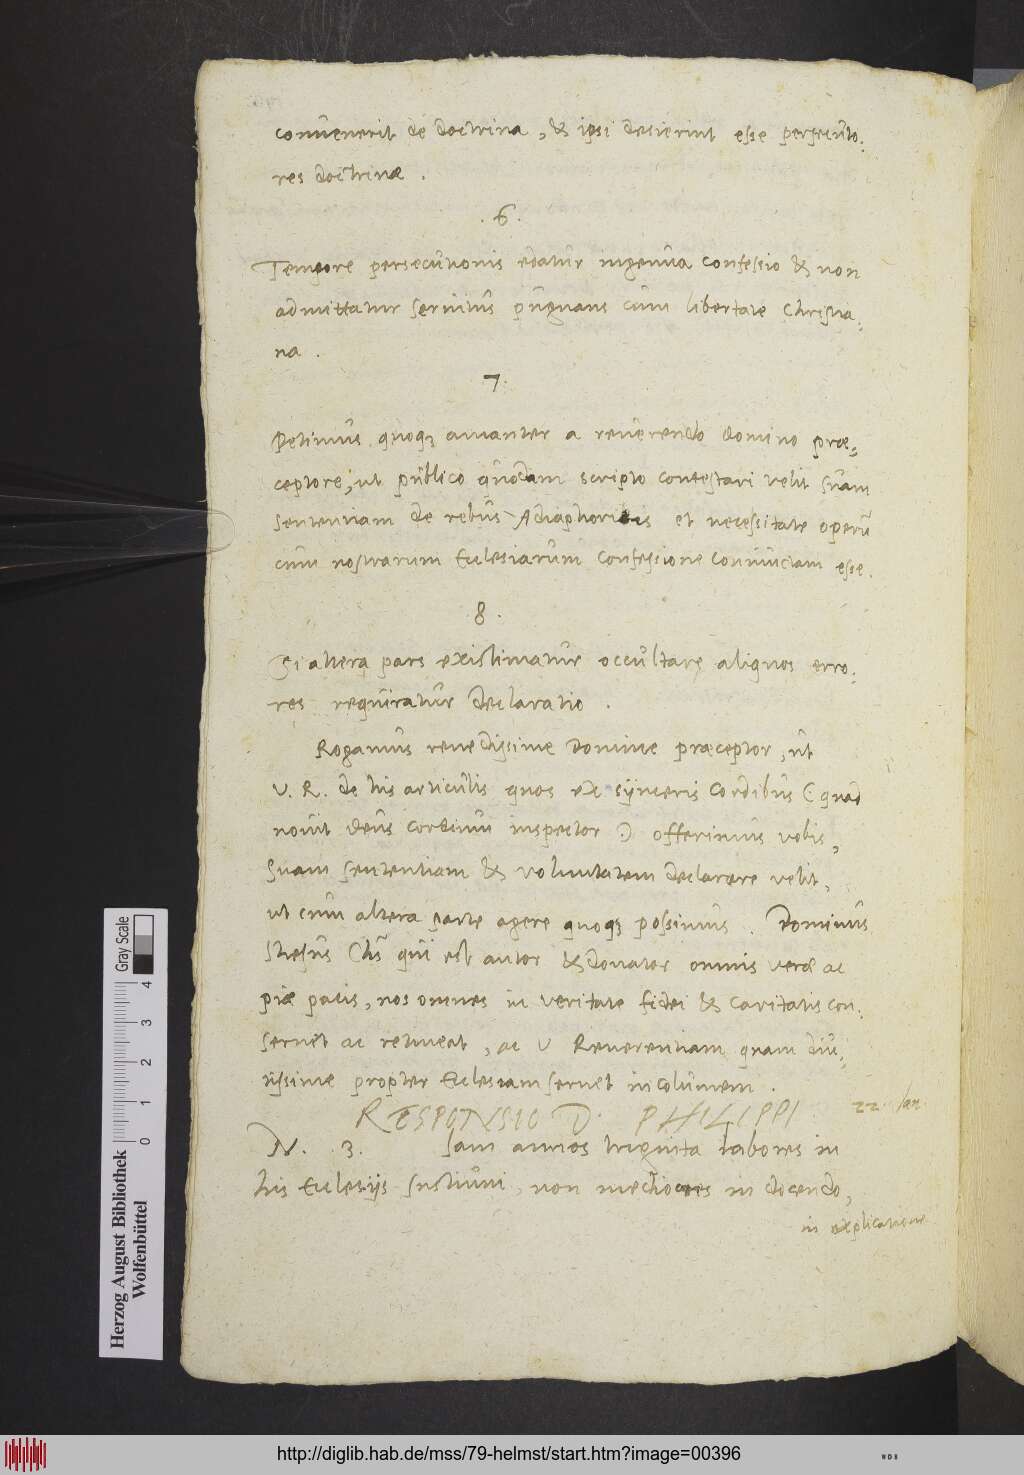 convenerit de doctrina, & ipsi desierint esse persecuto:
res doctrinæ .
. 6 .
Tempore persecutionis edatur ingenua confessio & non
admittatur servitus pugnans cum libertate Christia:
na .
7.
Petimus quoqȝ amanter a reverendo domino præ:
ceptore, ut publico quodam scripto contestari velit suam
sententiam de rebus Adiaphoricis et necessitate operū
cum nostrarum Ecclesiarum Confessione coniunctam esse.
8 .
Si altera pars existimatur occultare aliquos erro:
res requiratur declaratio .
Rogamus Domine præceptor, ut
V. R. de his articulis quos ex synceris Cordibus (: quod
novit deus cordium inspector :) offerimus vobis,
Suam sententiam & voluntatem declarare velit,
ut cum altera parte agere quoqȝ possimus . Dominus
Ihesus Chs qui est autor & donator omnis veræ ac
piæ pacis, nos omnes in veritate fidei & caritatis con:
servet ac retineat, ac V Reverentiam quam diu:
tissime propter Ecclesiam servet incolumem .
RESPONSIO D. PHILIPPI 22. Jan.
N. 3. Jam annos triginta labores in
his Ecclesijs Sustinui, non mediocres in docendo,
in explicatione
Gray Scale
4
3
2
1
0
Herzog August Bibliothek
Wolfenbüttel
http://diglib.hab.de/mss/79-helmst/start.htm?image=00396